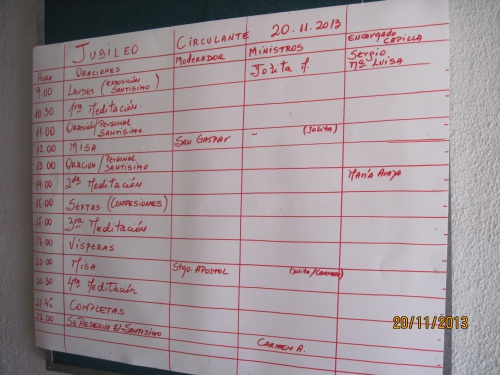 JUBILEO CIRCULANTE 20.11.2013
HORA ORACIONES MODERADOR MINISTROS ENCARGADO CAPILLA
9.00 LAUDES (EXPOSICIÓN SANTISIMO) Jolita M. Sergio Mª LUISA
10.30 1ra Meditación.
11.00 ORACIÓN/PERSONAL SANTISIMO
12.00 MISA SAN GASPAR - (Jolita)
13.00 ORACION/PERSONAL SANTISIMO
14.00 2da Meditación María Araya
16.00 SEXTAS (CONFESIONES)
17.00 3ra Meditación
18.00 VÍSPERAS
20.00 MISA Stgo. APOSTOL (Jolita/CARMEN)
20.30 4ta Meditación
21.45 COMPLETAS
22.00 SE RESERVA El SANTISIMO
CARMEN A.
20/11/2013